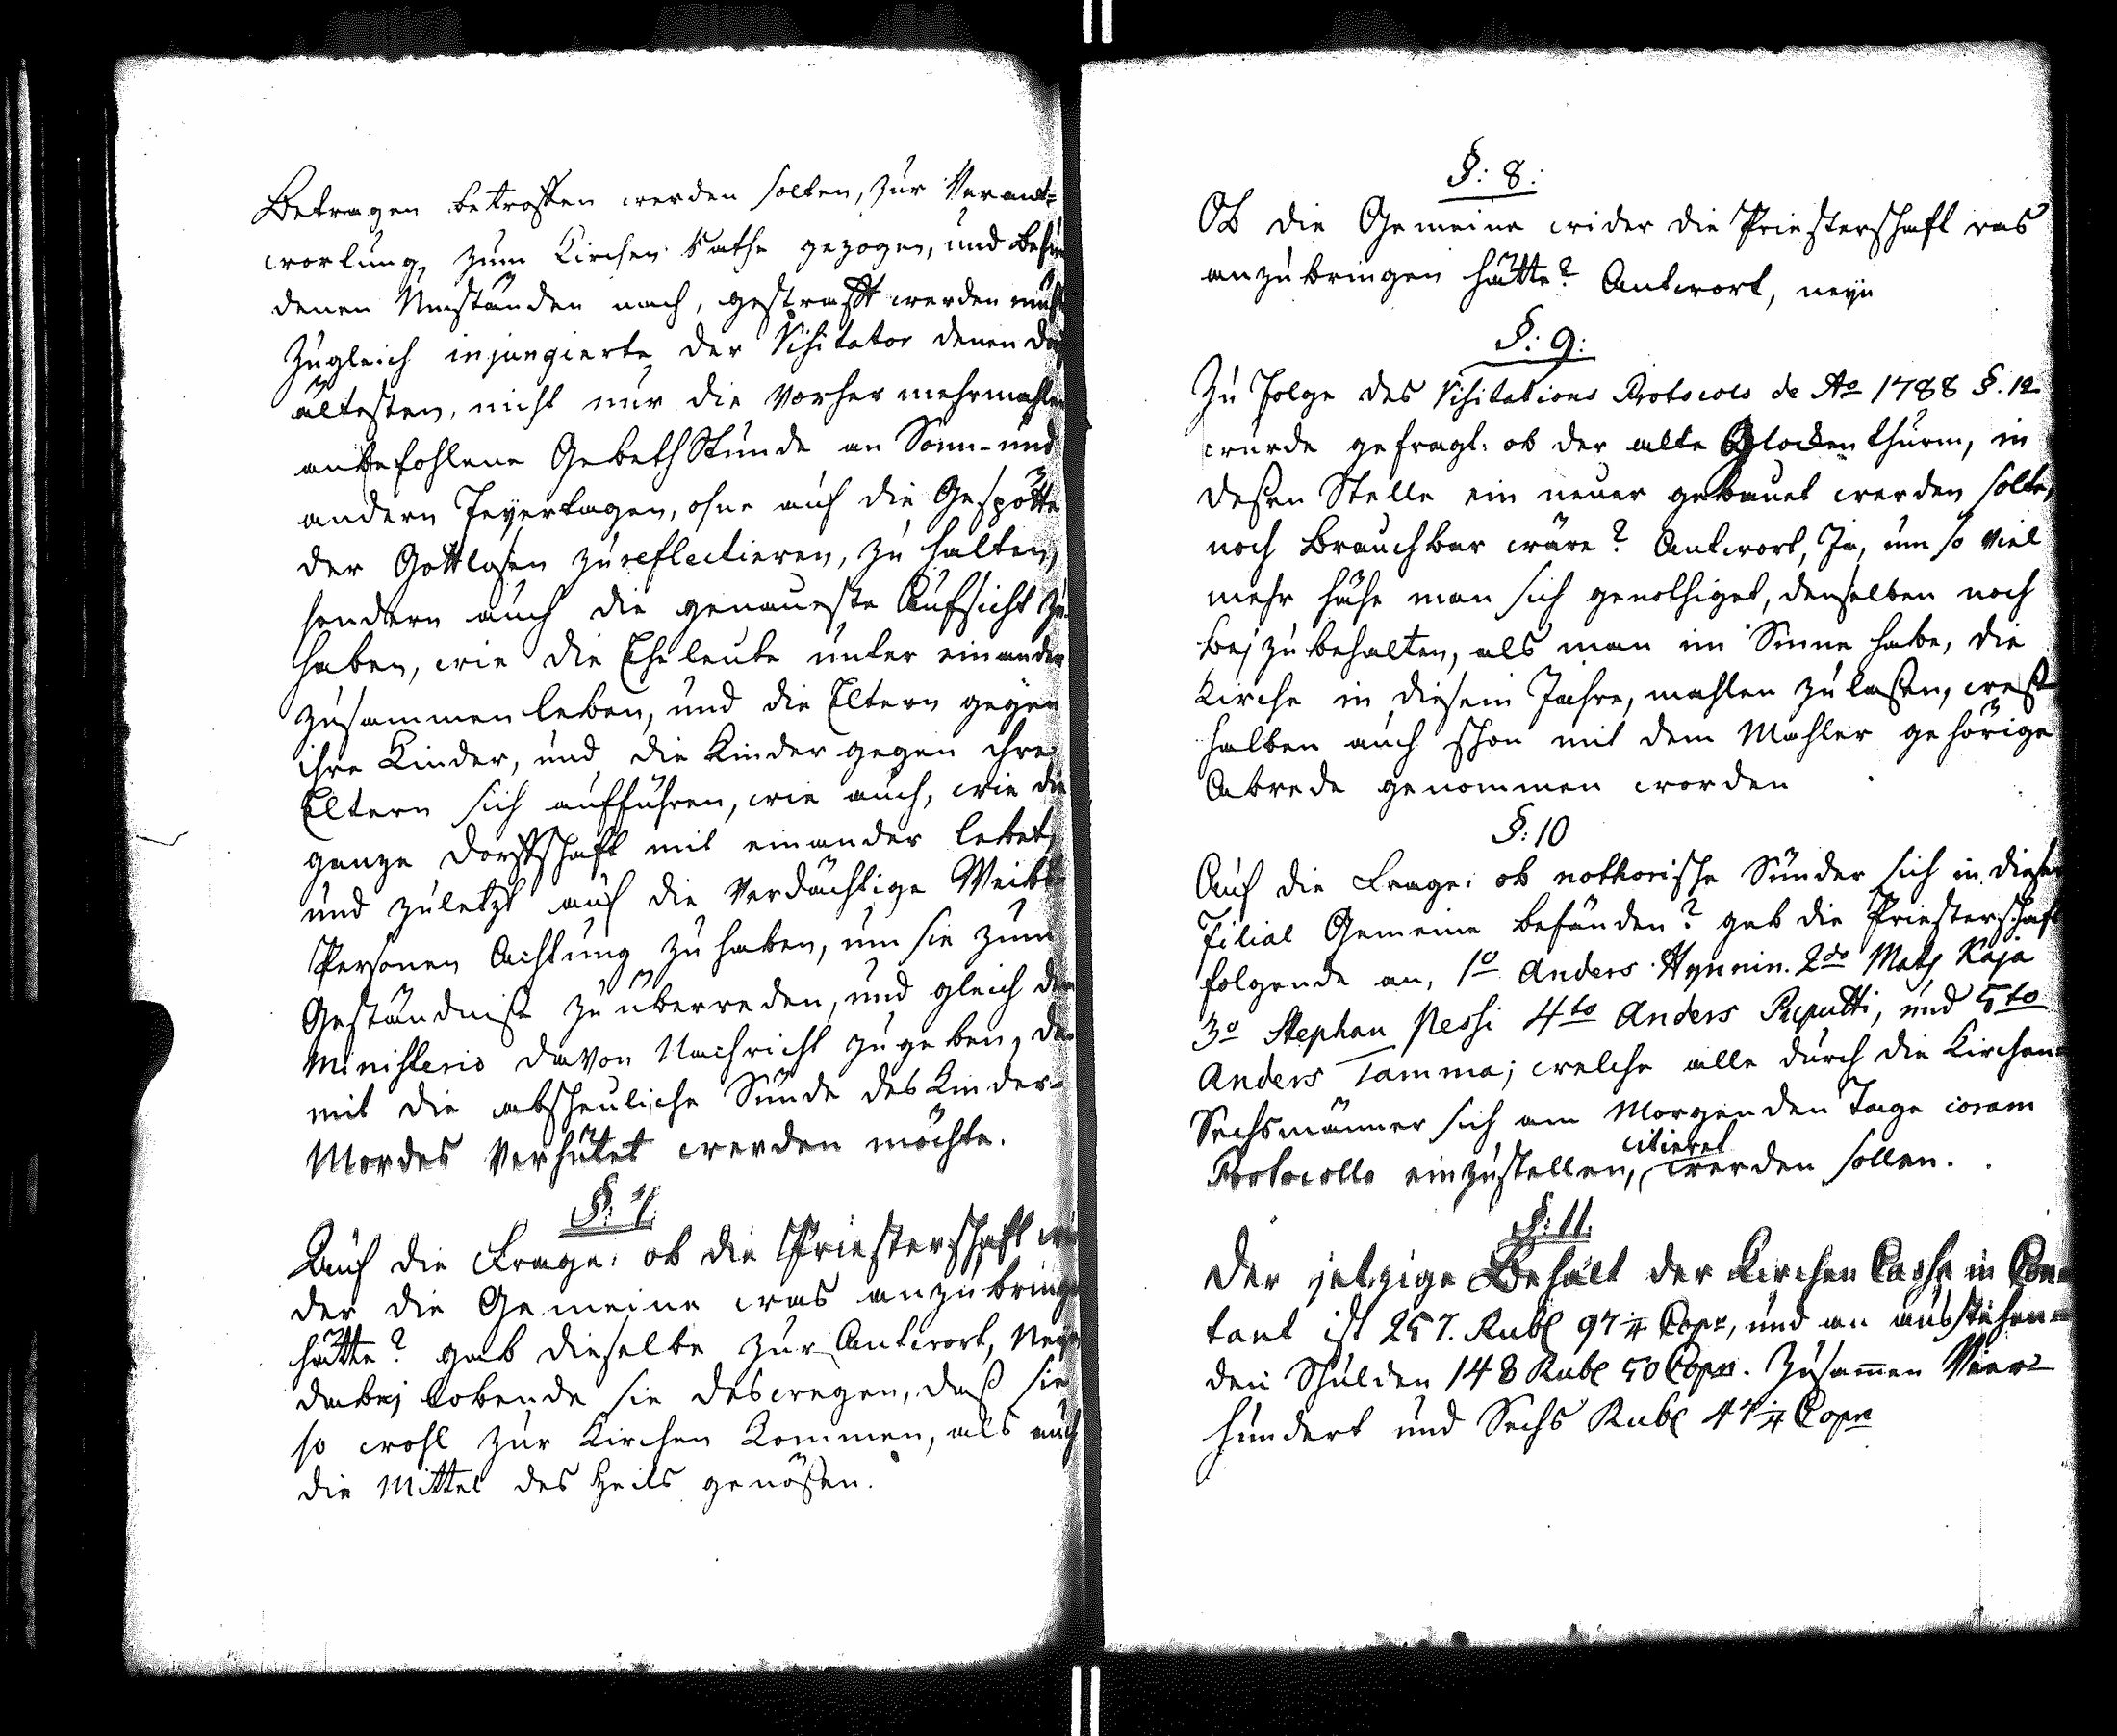 Betragen betroffen werden solten, zur Verant-
wortung, zum Kirchen Rathe gezogen, und befun
denen Umständen nach, gestrafft werden müst
Zugleich injungierte der Visitator denen Dorf
ältesten, nicht nur die vorher mehrmahlen
anbefohlene Gebeth Stunde an Sonn- und
andern Feyertagen, ohne auf die Gespötte
der Gottlosen zu reflectieren, zu halten,
sondern auch die genaueste Aufsicht zu
haben, wie die Eheleute unter einander
zusammen leben, und die Eltern gegen
ihre Kinder, und die Kinder gegen ihre
Eltern sich aufführen, wie auch, wie die
ganze Dorffschafft mit einander lebet,
und zuletzt auf die verdächtige Weibs
Personen Achtung zu haben, um sie zum
Geständniß zu überreden, und gleich dem
Ministerio davon Nachricht zu geben, da
mit die abscheuliche Sünde des Kinder-
Mordes verhütet werden möchte.
§: 7.
Auf die Frage: ob die Priesterschafft wi
der die Gemeine was anzubringen
hätte? gab dieselbe zur Antwort, Neyn
dabej lobende sie deswegen, daß sie
so wohl zur Kirchen kommen, als auch
die Mittel des Heils genößen.
§: 8:
Ob die Gemeine wider die Priesterschafft was
anzubringen hätte? Antwort, neyn
§: 9:
Zu Folge des Visitations Protocols de Ao 1788 §. 12.
wurde gefragt: ob der alte Glocken thurm, in
deßen Stelle ein neuer gebauet werden solte,
noch brauchbar wäre? Antwort, Ja, um so viel
mehr sähe man sich genothiget, denselben noch
bej zu behalten, als man im Sinne habe, die
Kirche in diesem Jahre, mahlen zu laßen, weß
halben auch schon mit dem Mahler gehörige
Abrede genommen worden
§: 10
Auf die Frage: ob nothorische Sünder sich in dieser
Filial Gemeine befänden? gab die Priesterschafft
folgende an, 1o Anders Hynnin. 2do Mats Kaja
3o Stephan Nessi 4to Anders Reputti, und 5to
Anders Tamma; welche alle durch die Kirchen-
Sechsmänner sich am Morgenden Tage coram
Protocollo einzustellen, citieret werden sollen.
§: 11.
Der jetzige Behalt der Kirchen Casse in Con-
tant ist 257. Rubl 97 1/4 Cope, und an ausstehen-
den Schulden 148 Rubl 50 Copn. Zusammen Vier-
hundert und Sechs Rubl 47 1/4 Cope